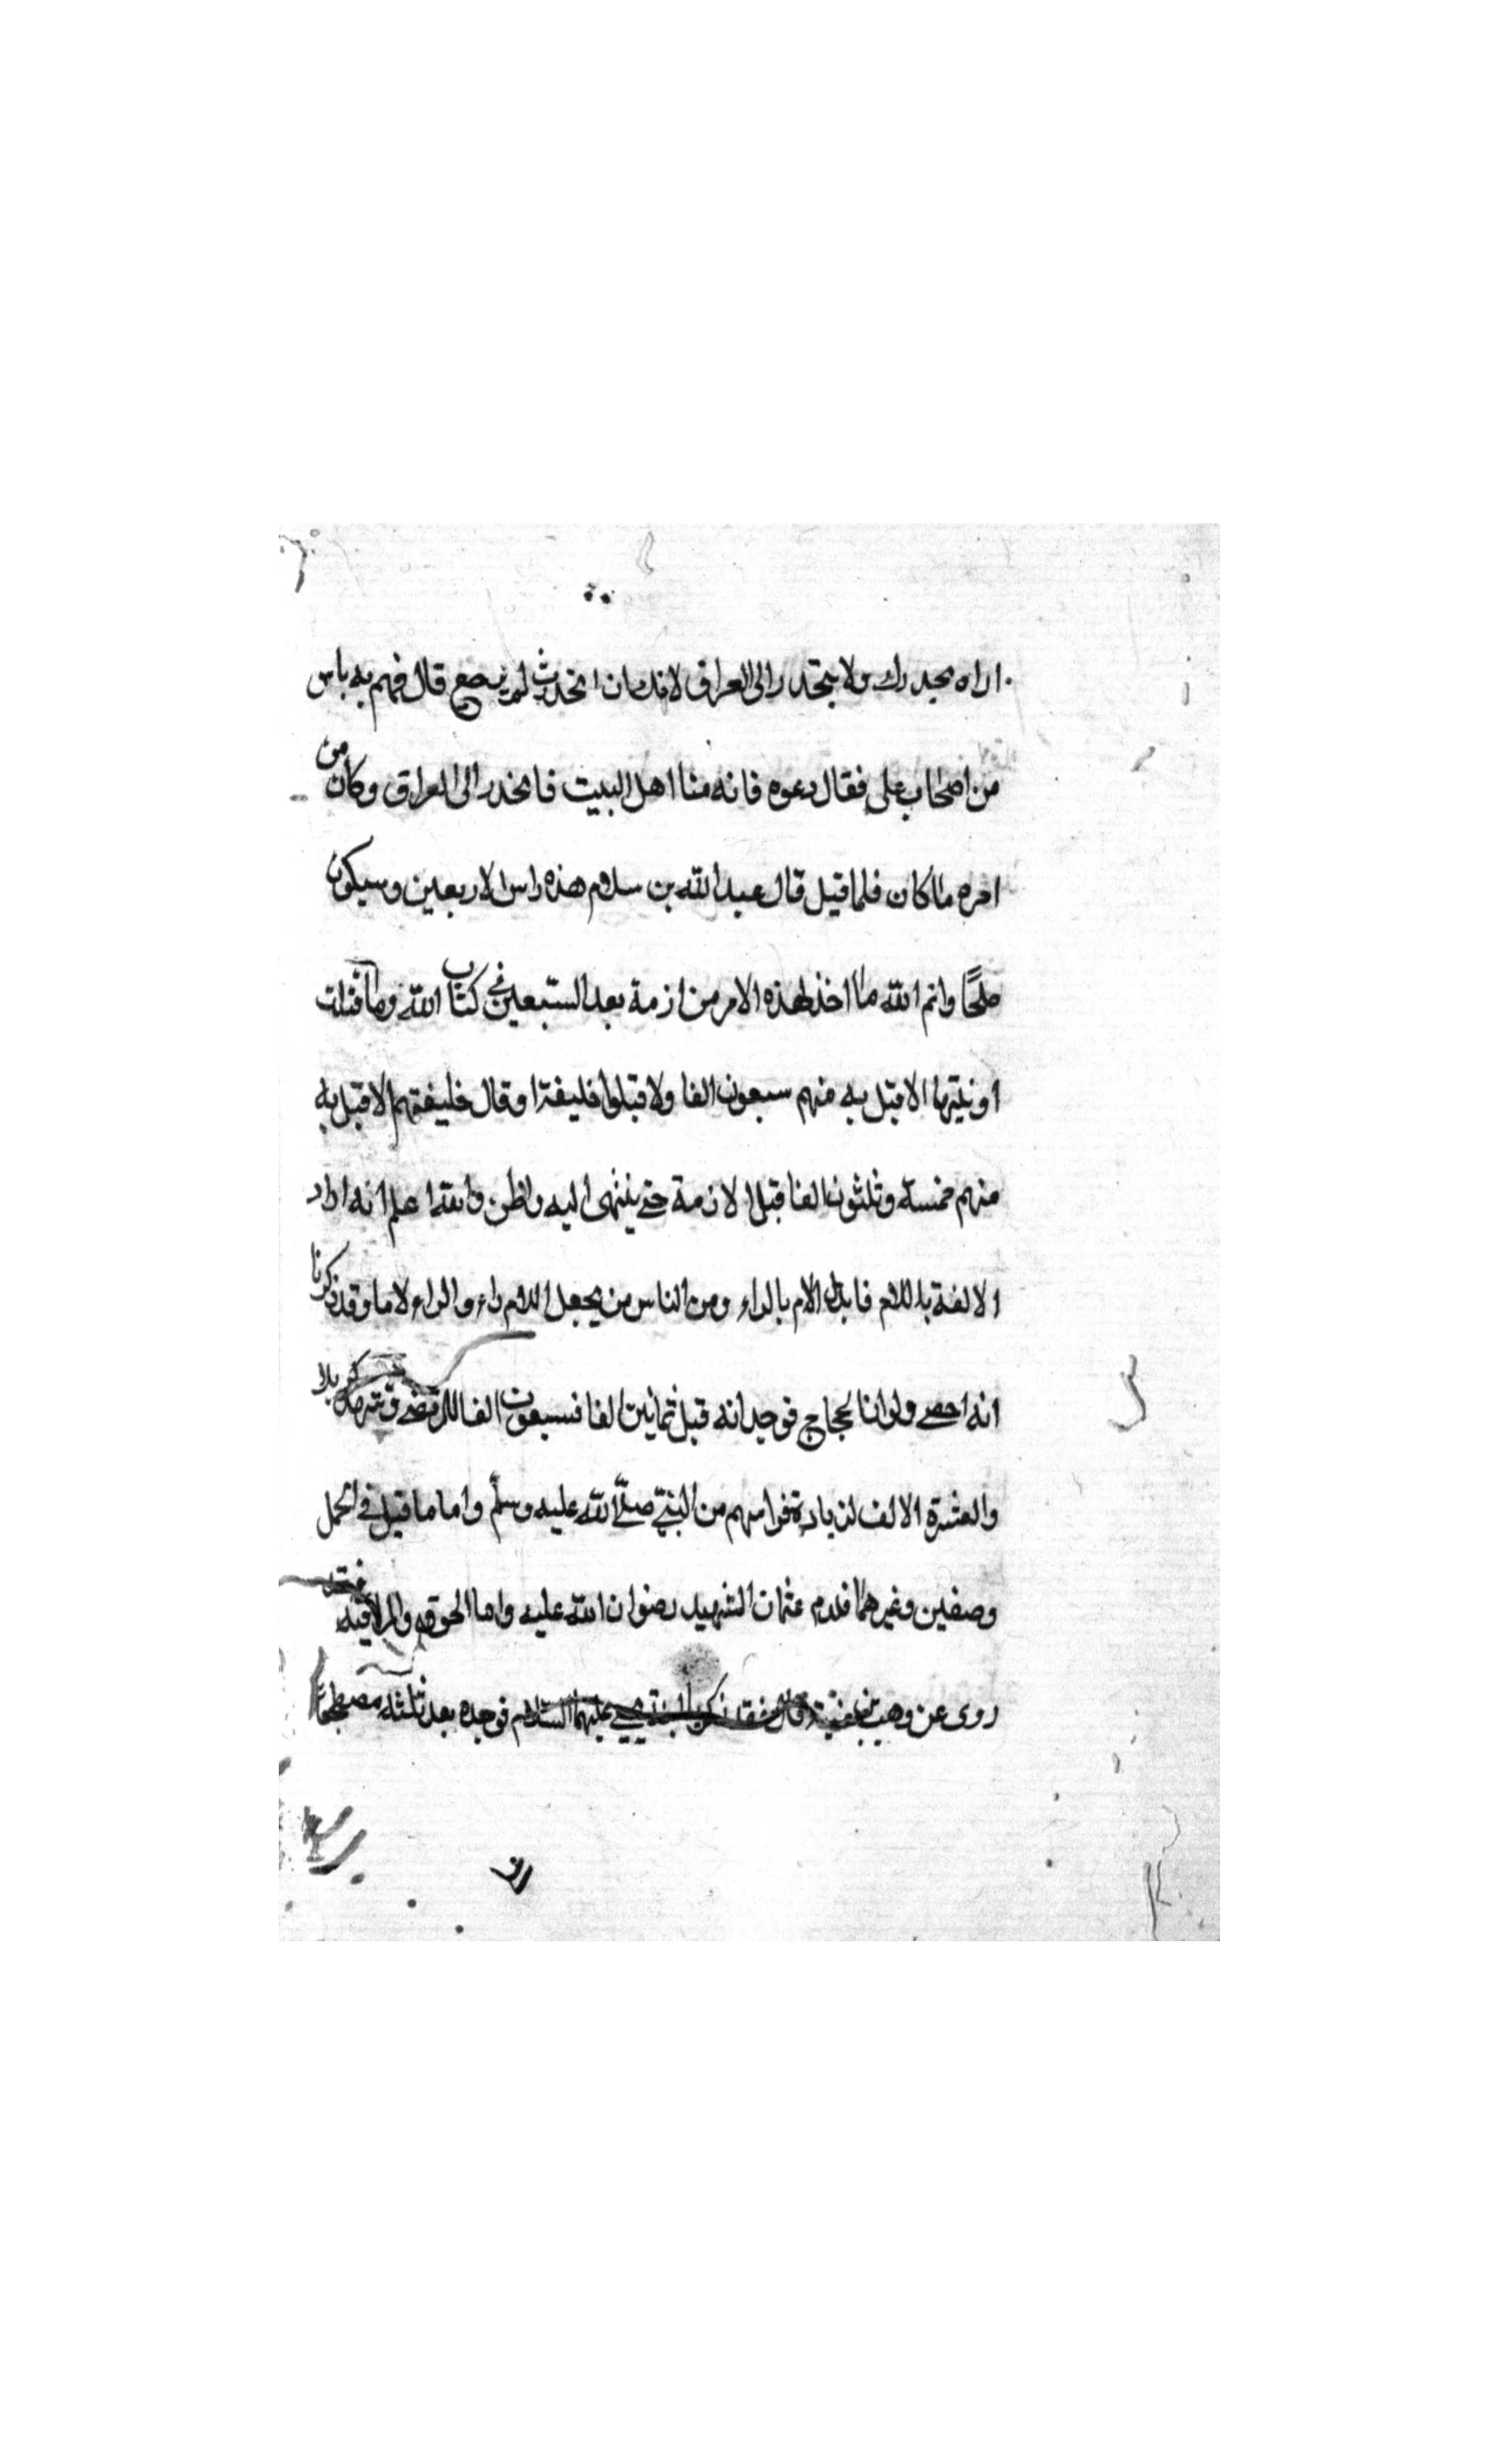 اراه يجدرك ولا ينحدر الى العراق لانك ان انحدرت لم ترجع قال فهم به ناس
من اصحاب على فقال دعوه فانه منا اهل البيت فانحدر الى العراق وكان من
امره ما كان فلما قتل قال عبد الله بن سلام هذه راس الاربعين وسيكون
صلحًا وايم الله ما اخذ لهذه الامر من ازمة بعد السبعين فى كتاب الله وما قتلت
نبيها الا قتل به منهم سبعون الفا ولا قتلوا خليفة او قال خليفتهم الا قتل به
منهم خمسة وثلثون الفا قبل الازمة حتى ينتهى اليه واظن والله اعلم انه اراد
الالفة باللام فابدل الام بالراء ومن الناس من يجعل اللام راء والراء لاما وقد ذكرنا
انه احصى والوانا لحجاج فوجد انه قتل ثمانين الفا فسبعون الفا كربلا
والعشرة الالف لزيادة قرابتهم من النبىّ صلّى الله عليه وسلّم واما ما قيل فى الجمل
وصفين وغيرهما فلدم عثمان الشهيد رضوان الله عليه واما الحوقه والمرلاقته
روى عن وهب قال فقد زكريا ابنه يحيى عليهما السلام فوجده بعد ثلثة مضطجعًا